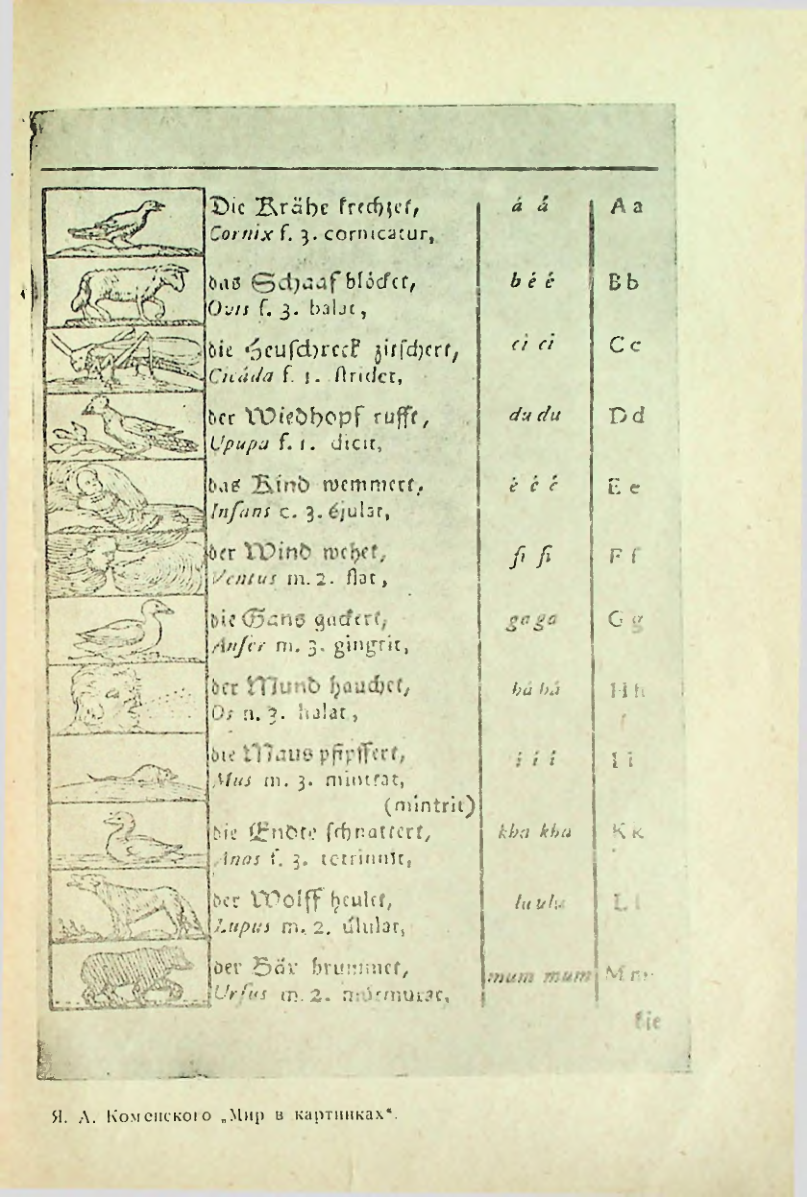 Die Krähe krechzet, á á A a
Cornix f. 3. cornicatur,
das Schaaf blöcket, bé é B b
Ovis f. 3. balat,
die Heuschreck zitschert, ci ci C c
Cicáda f. 1. stridet,
der Wiedhopf rufft, du du D d
Upupa f. 1. dicit,
das Kind wemmert, é é é E e
Infans c. 3. éjulat,
der Wind wehet, fi fi F f
Ventus m. 2. flat,
die Gans gackert, ga ga G g
Anser m. 3. gingrit,
der Mund hauchet, há há H h
Os n. 3. halat,
die Maus pfipffert, í í í I i
Mus m. 3. mintrat,
(mintrit)
die Endte schnattert, kha kha K k
Anas f. 3. tetrinnit,
der Wolff heulet, lu ulu L l
Lupus m. 2. úlulat,
der Bär brummet, mum mum M m
Ursus m. 2. múrmurat,
die
Я. А. Коменского „Мир в картинках“.